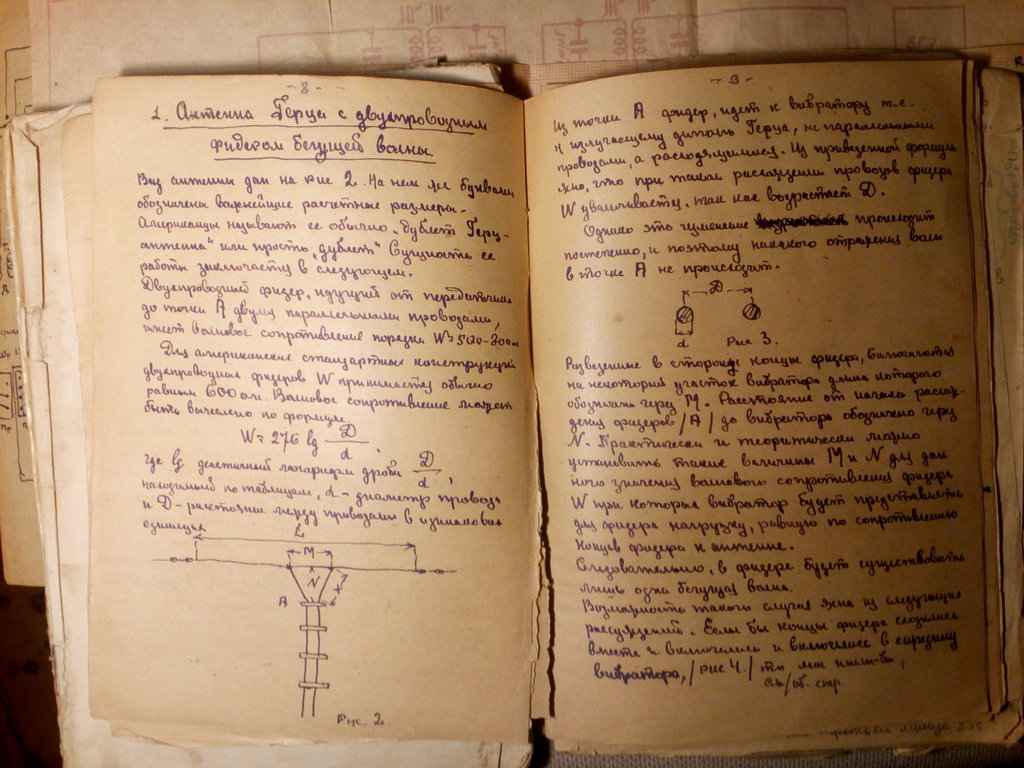 - 8 -
1. Антенна Герца с двухпроводным
фидером бегущей волны
Вид антенны дан на рис 2. На нем же буквами
обозначены важнейшие расчетные размеры.
Американцы называют ее обычно „дублет Герц-
антенна" или просто „дублет" Сущность ее
работы заключается в следующем.
Двухпроводной фидер, идущий от передатчика
до точки А двумя параллельными проводами,
имеет волновое сопротивление порядка W=500-800ом
Для американских стандартных конструкций
двухпроводных фидеров W принимается обычно
равным 600 ом. Волновое сопротивление может
быть вычислено по формуле
W = 276 lg D/d,
где lg десятичный логарифм дроби D/d,
находимый по таблицам, d - диаметр провода
и D - расстояние между проводами в одинаковых
единицах
L
M
N
A
Рис. 2.
- 9 -
Из точки А фидер, идет к вибратору т.е.
к излучающему диполь Герца, не параллельными
проводами, а расходящимися. Из приведенной формулы
ясно, что при таком расхождении проводов фидера
W увеличивается. так как возрастает D.
Однако это изменение происходит
постепенно, и поэтому никакого отражения волн
в точке А не происходит.
D
d
Рис 3.
Разведенные в стороны концы фидера, включаются
на некоторый участок вибратора длина которого
обозначена через М. Расстояние от начала расхож-
дения фидеров /А/ до вибратора обозначено через
N. Практически и теоритически можно
установить такие величины М и N для дан
ного значения волнового сопротивления фидера
W при которых вибратор будет представлять
для фидера нагрузку, равную по сопротивлению
концов фидера к антенне.
Следовательно, в фидере будет существовать
лишь одна бегущая волна.
Возможность такого случая ясна из следующих
рассуждений. Если бы концы фидера сходились
вместе и включались и включались в середину
вибратора, /рис 4./ то мы имели бы,
см/об. стр.